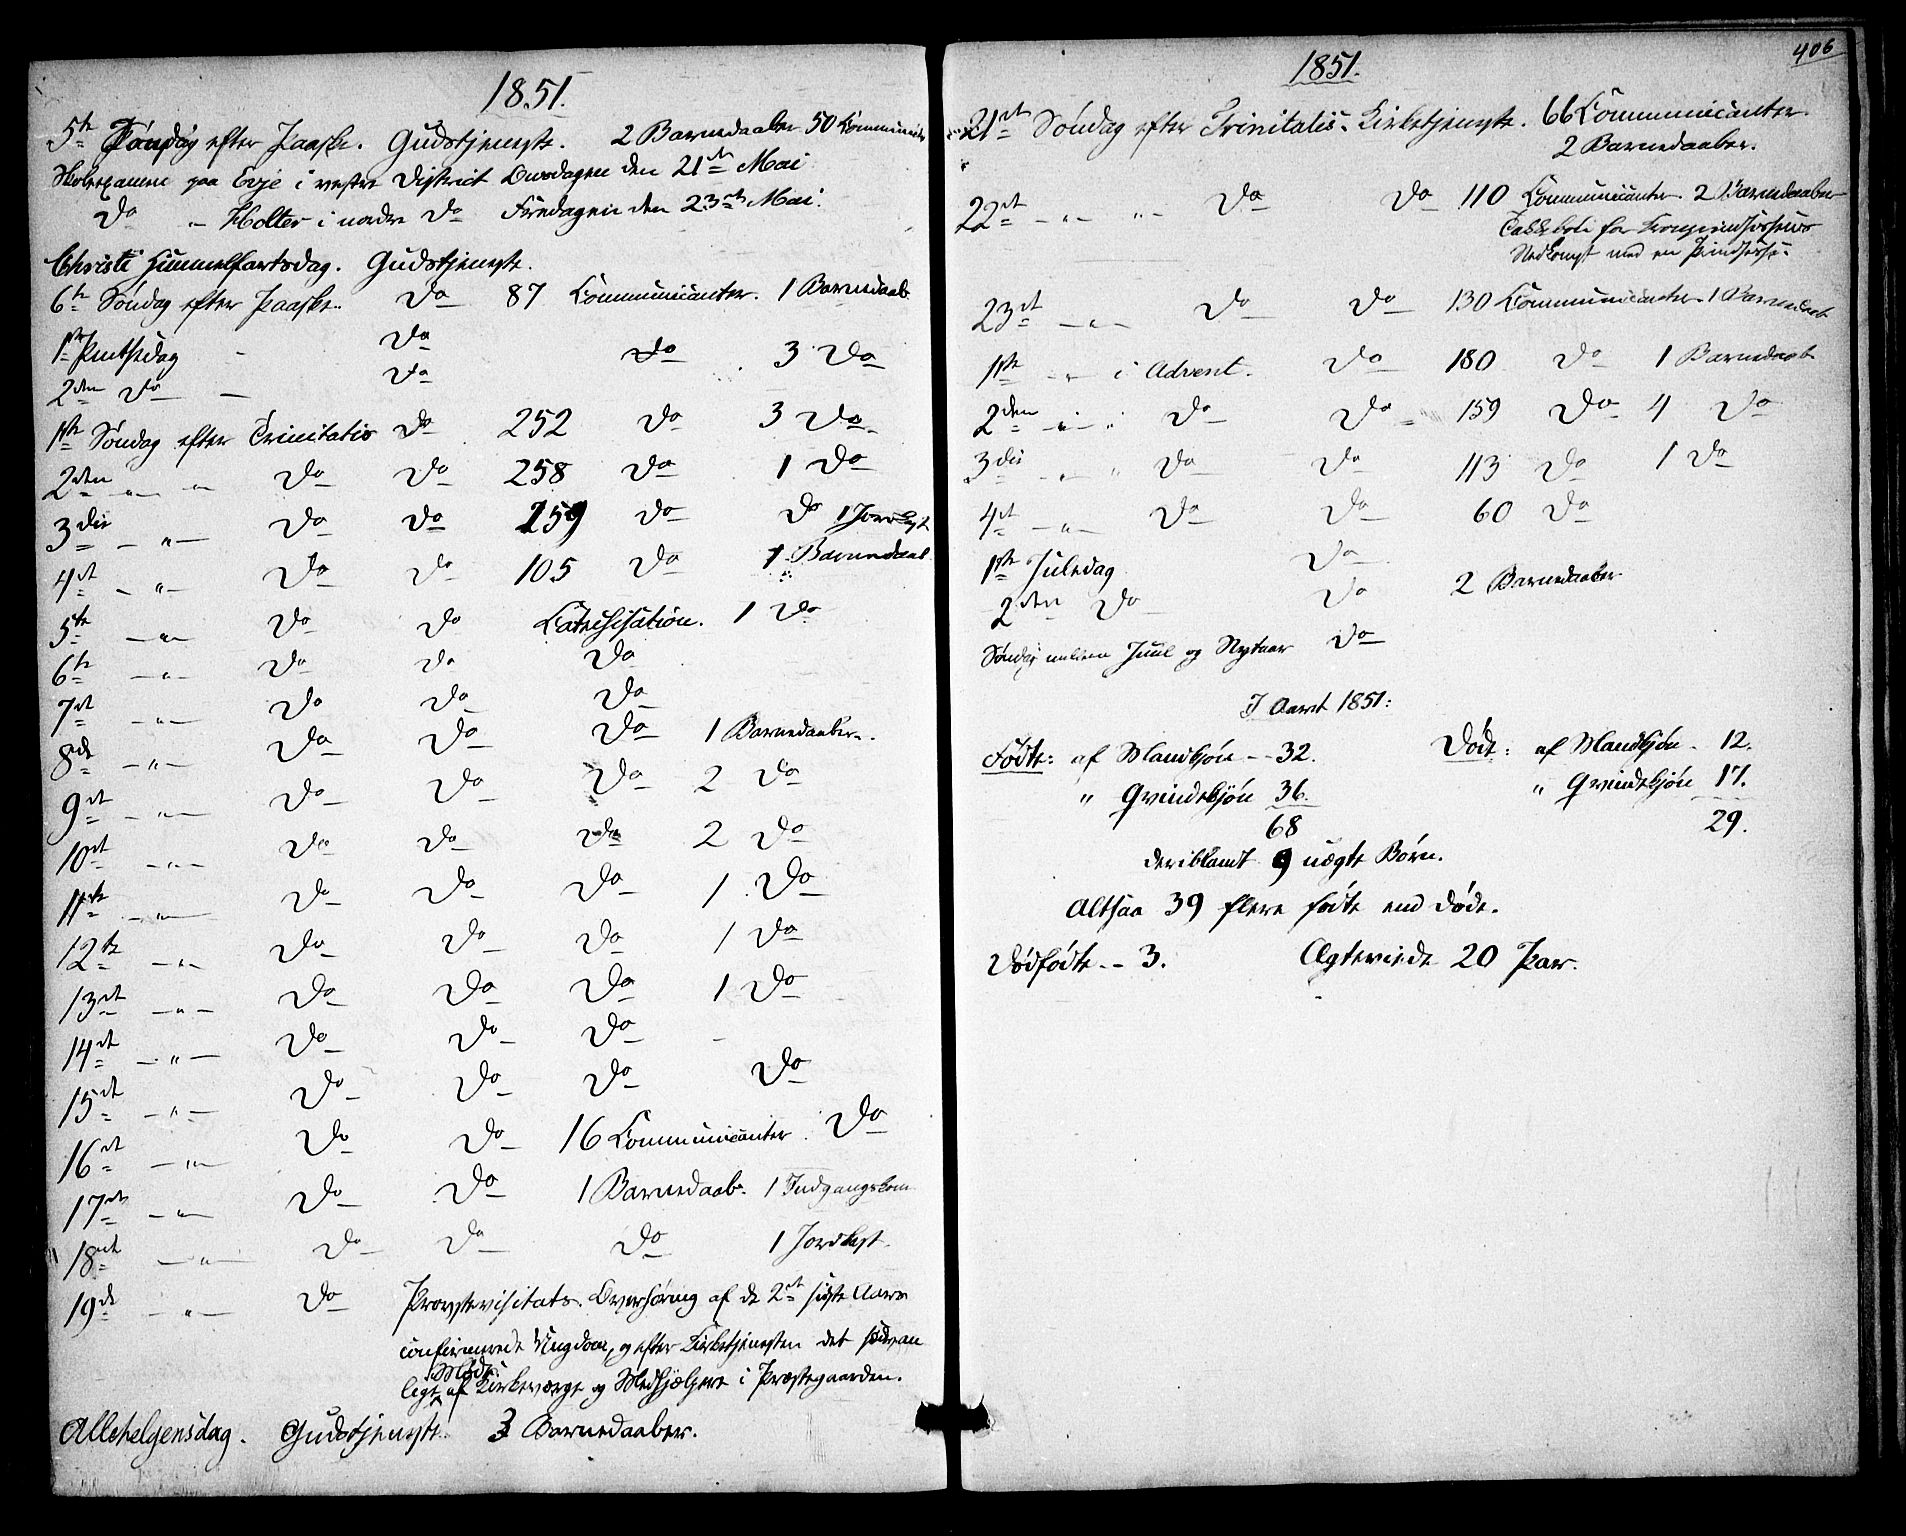 1851.
5te Søndag efter Paaske. Gudstjeneste. 2 Barnedaaber 50 Communicanter
Skoleexamen paa Evje i vestre District Onsdagen den 21de Mai
Do " Holter i nordre Do Fredagen den 23de Mai.
Christi Himmelfartsdag. Gudstjeneste.
6te Søndag efter Paaske.. Do 87 Communicanter. 1 Barnedaab
1ste Pintsedag - Do Do 3 Do
2den Do - Do
1ste Søndag efter Trinitatis Do 252 Do 3 Do
2den - " - " - Do Do 258 Do 1 Do
3die - " - Do Do 259 Do Do 1 Jordkast
4de - " - Do Do 105 Do 1 Barnedaab
5te - " - Do Do Catechisation. 1 Do
6te - " - Do Do Do
7de - " - Do Do Do
8de - " - Do Do Do 1 Barnedaaber.
9de - " - Do Do Do 2 Do
10de - " - Do Do Do 2 Do
11te - " - Do Do Do 1 Do
12te - " - Do Do Do 1 Do
13de - " - Do Do Do 1 Do
14de - " - Do Do Do
15de - " - Do Do Do Do
16de - " - Do Do 16 Communicanter. Do
17de - " - Do Do 1 Barnedaab. 1 Indgangskone
18de - " - Do Do Do 1 Jordkast.
19de - " - Do Provstevisitats. Overhøring af de 2de sidste Aars
confirmerede Ungdom, og efter Kirketjenesten det sædvan
Møde
ligt af Kirkeværge og Medhjælpere i Præstegaarden.
Allehelgensdag. Gudstjeneste 3 Barnedaaber.
406
1851.
21de Søndag efter Trinitatis. Kirketjeneste. 66 Communicanter.
2 Barnedaaber.
22de - " - " - Do Do 110 Communicanter 2 Barnedaaber
Taksebøn for Kronprindsessens
Nedkomst med en Prindsesse.
23de - " - Do Do 130 Communicanter. 1 Barnedaab
1ste - " - i Advent. Do 180 Do 1 Barnedaab
2den - " - " Do Do 159 Do 4 Do
3die - " - " Do Do 113 Do 1 Do
4de - " - Do Do 60 Do
1ste Juledag Do
2den Do Do 2 Barnedaaber
Søndag mellem Juul og Nytaar Do
I Aaret 1851:
Fødte: af Mandkjøn -- 32. Døde: af Mandkjøn - 12.
" Qvindekjøn 36. " Qvindekjøn 17.
68 29.
deriblandt 9 uægte Børn.
Altsaa 39 flere fødte end døde.
Dødfødte -- 3. Ægteviede 20 Par.